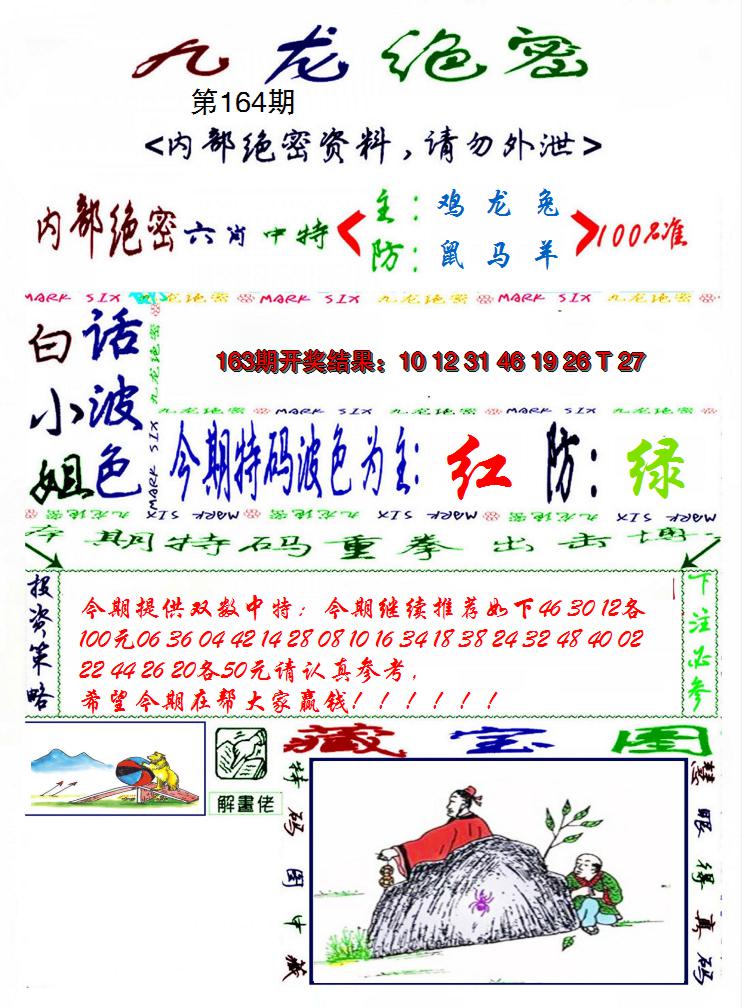 九龙绝密
第164期
<内部绝密资料，请勿外泄>
内部绝密六肖中特
主：鸡 龙 兔
防：鼠 马 羊
100%准
MARK SIX 九龙绝密 MARK SIX 九龙绝密 MARK SIX 九龙绝密
白小姐
话波色
163期开奖结果：10 12 31 46 19 26 T 27
九龙绝密 MARK SIX 九龙绝密 MARK SIX 九龙绝密
今期特码波色为主：红 防：绿
MARK SIX 九龙绝密 MARK SIX 九龙绝密 MARK SIX
本期特码重拳出击博
投资策略
今期提供双数中特：今期继续推荐如下46 30 12各
100元06 36 04 42 14 28 08 10 16 34 18 38 24 32 48 40 02
22 44 26 20各50元请认真参考，
希望今期在帮大家赢钱！！！！！！
下注必参
解畫佬
藏宝图
特码图中藏
慧眼得真码